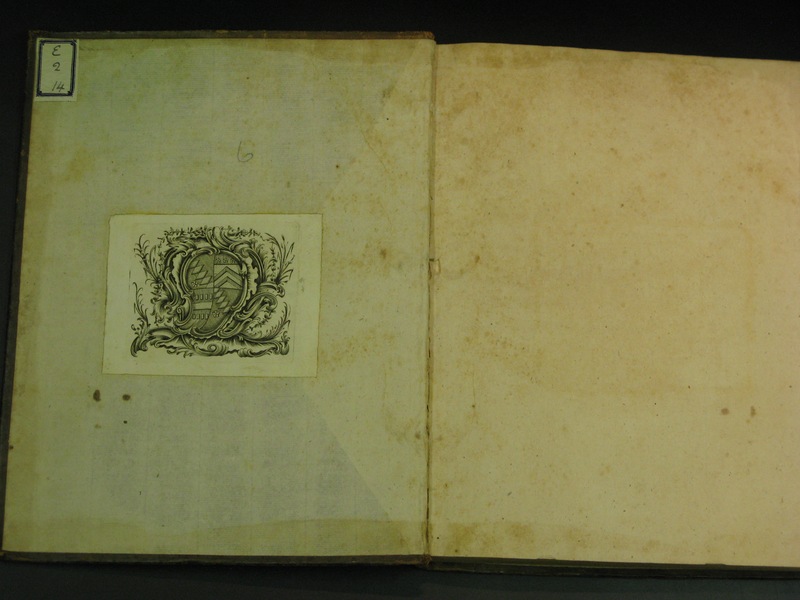 E
2
14
G